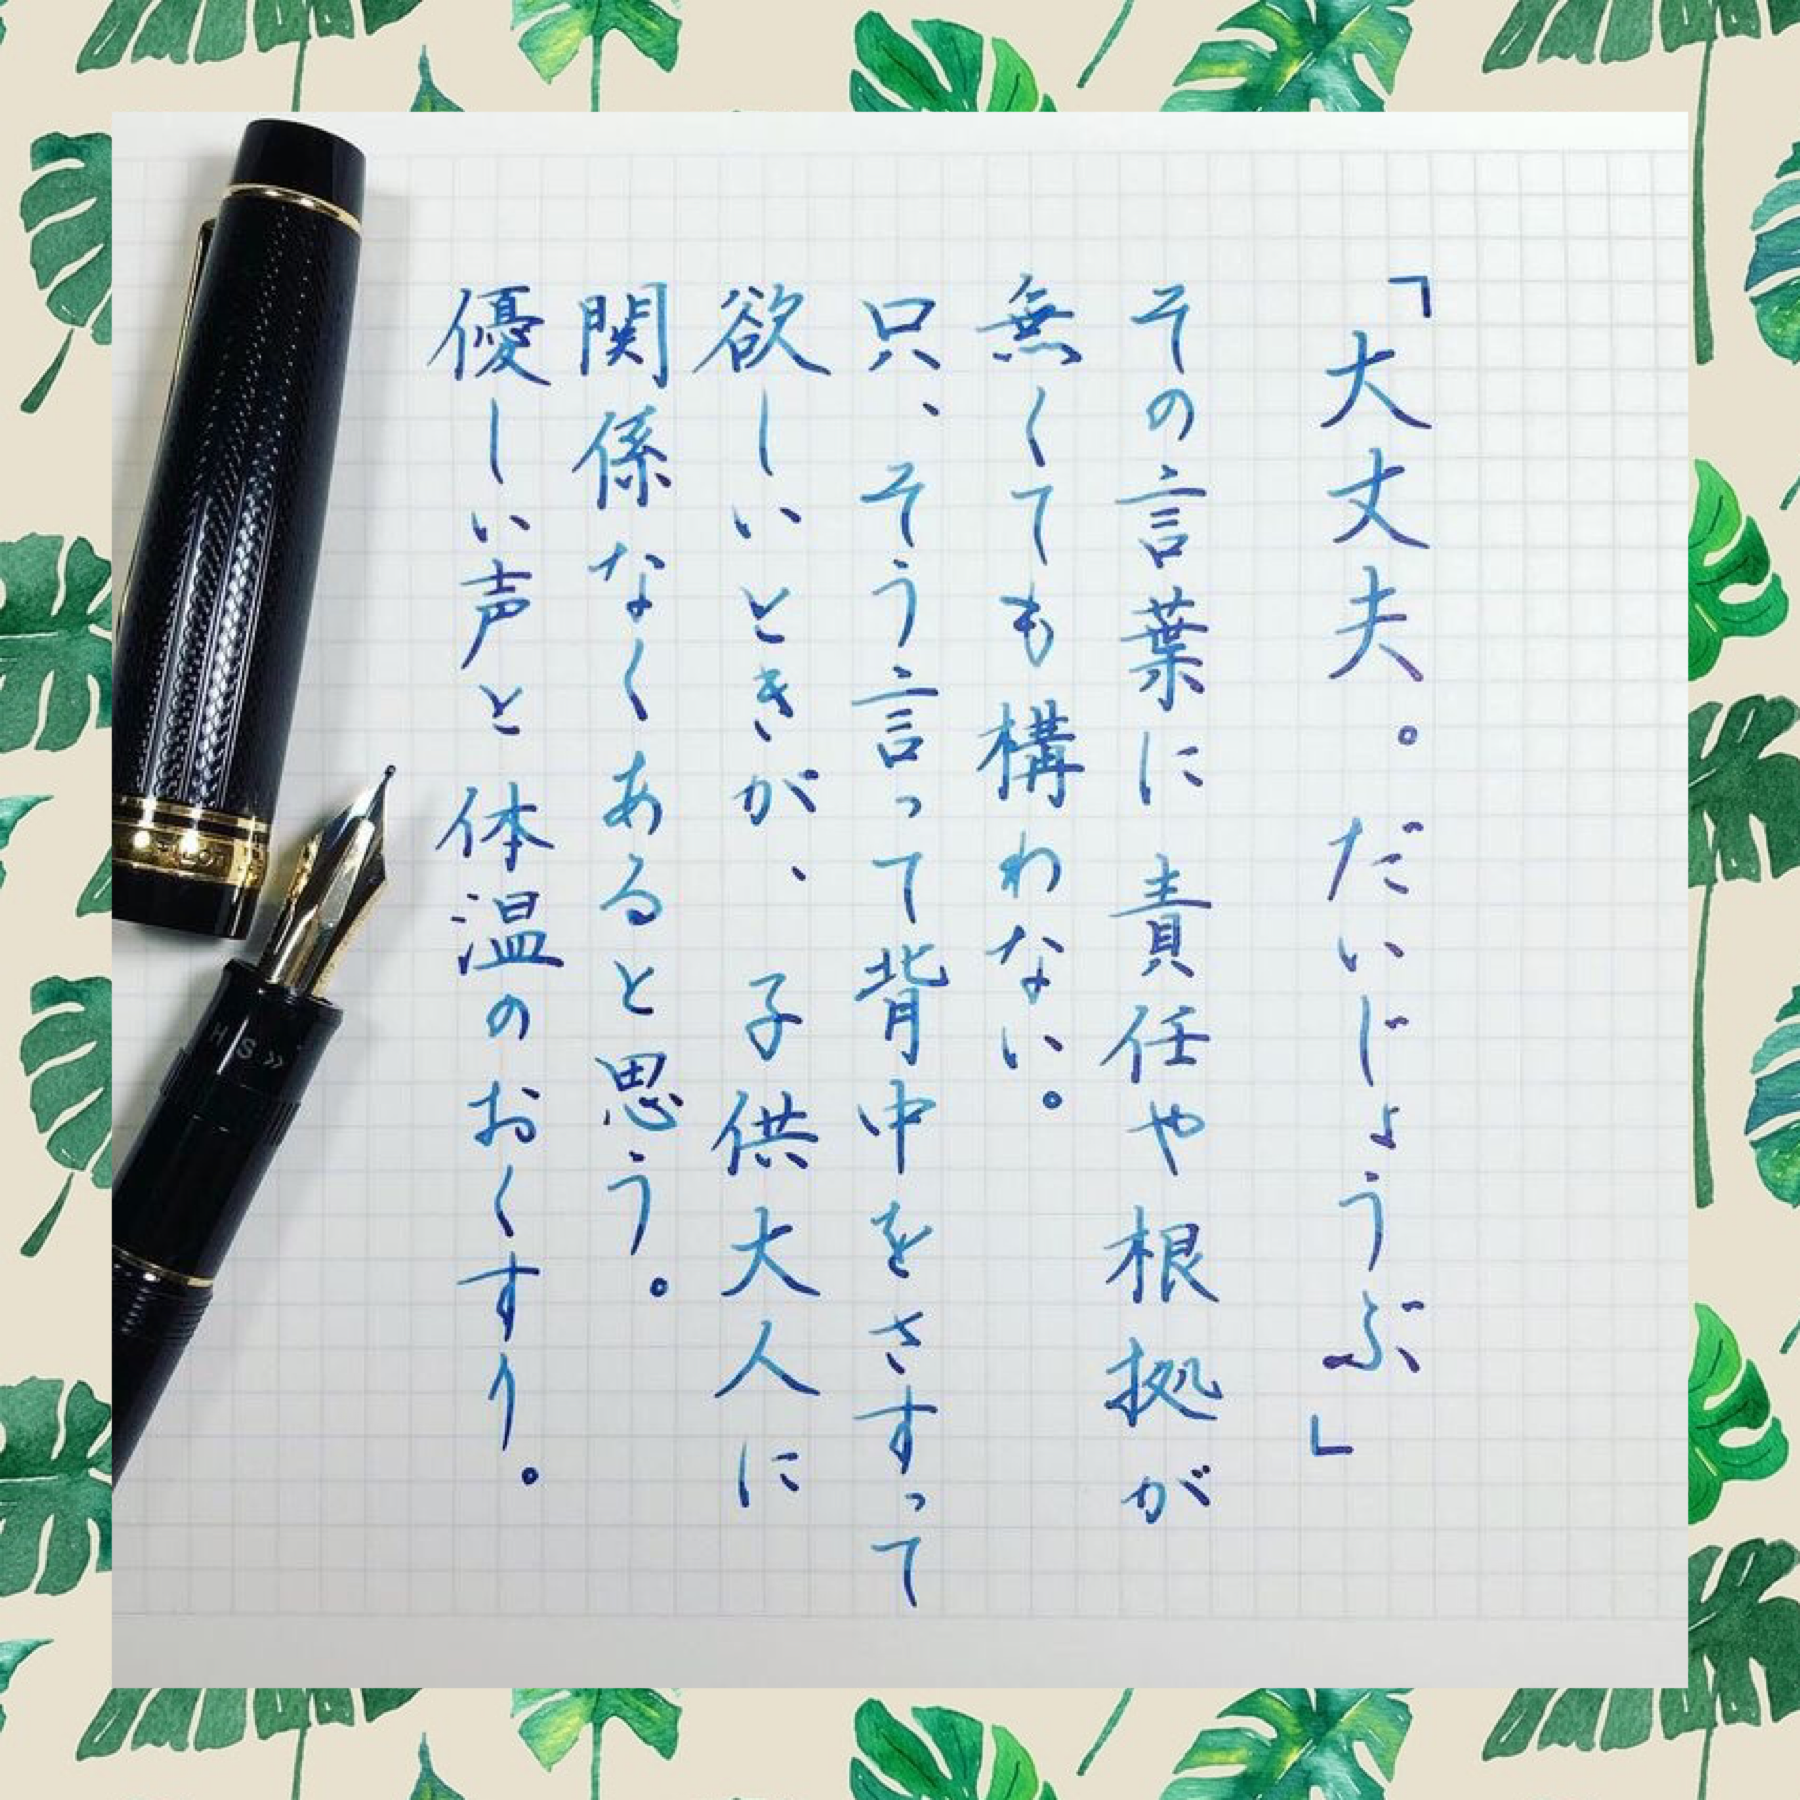 「大丈夫。だいじょうぶ」
その言葉に責任や根拠が
無くても構わない。
只、そう言って背中をさすって
欲しいときが、子供大人に
関係なくあると思う。
優しい声と体温のおくすり。
PILOT